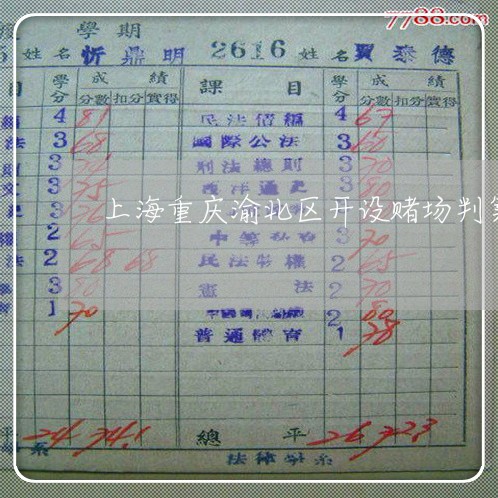 7788.com
學期
姓名 忻鼎明 2616 姓名 賈泰德
目 學分 成績 課目 學分 成績
分數 扣分 實得 分數 扣分 實得
4 81 民法債編 4 67
法 3 68 國際公法 3 60
3 刑法總則 3 70
3 75 西洋通史 3 80
上海重庆渝北区开设赌场判
2 65 中等 3 70
法 2 68 68 民法物權 2 65
3 80 憲法 2 70
1 70 2 80
普通體育 1 78
平 24 74.1 總平 26 72.3
系 法律學系